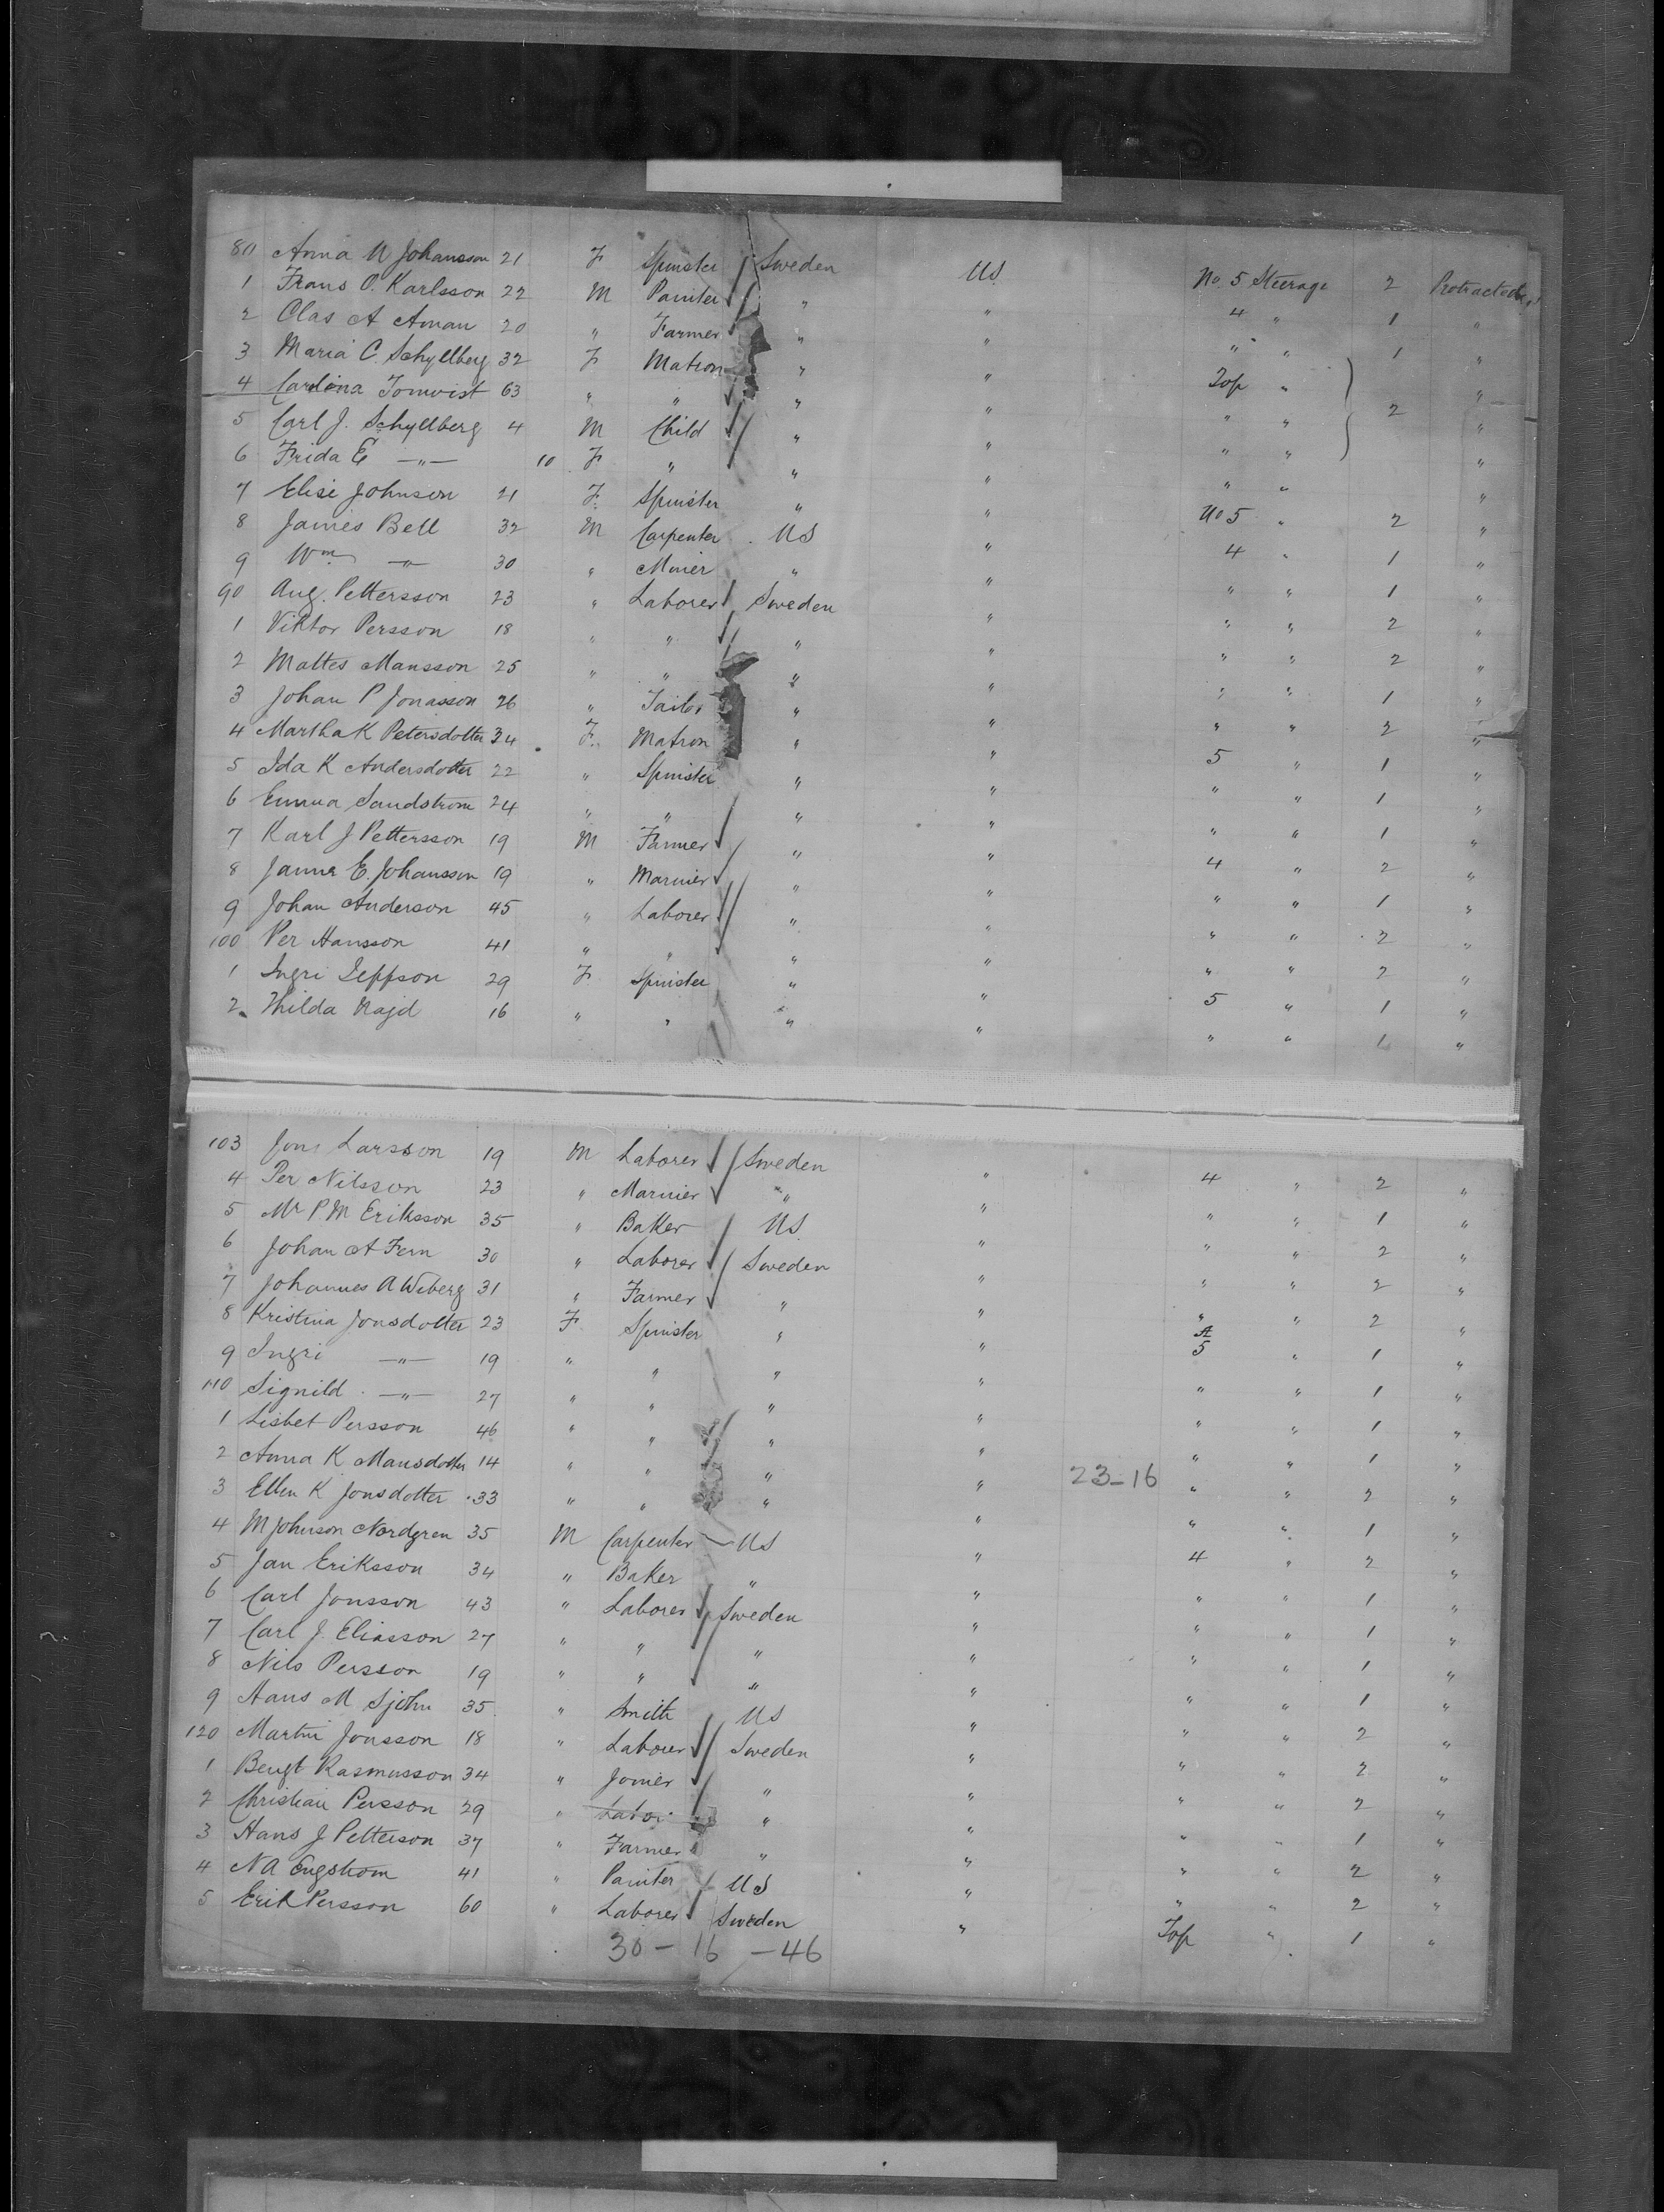 80 Anna U Johansson 21 F Spinster / Sweden US No. 5 Steerage 2 Protracted
1 Frans O. Karlsson 22 M Painter / " " 4 " 1 "
2 Clas A Aman 20 " Farmer " " " " 1 "
3 Maria C. Schyllberg 32 F Matron " " Top " "
4 Carolina Tornvist 63 " " " " " " 2 "
5 Carl J. Schyllberg 4 M Child / " " " " "
6 Frida E —"— 10 F " " " " " "
7 Elise Johnson 21 F. Spinster " " No 5 " 2 "
8 James Bell 32 M Carpenter US " 4 " 1 "
9 Wm —"— 30 " Minier " " " " 1 "
90 Aug. Pettersson 23 " Laborer / Sweden " " " 2 "
1 Viktor Persson 18 " " / " " " " 2 "
2 Mattes Mansson 25 " " " " " " 1 "
3 Johan P Jonasson 26 " Tailor " " " " 2 "
4 Martha K Petersdotter 34 F. Matron " " 5 " 1 "
5 Ida K Andersdotter 22 " Spinster " " " " 1 "
6 Emma Sandstrom 24 " " " " " " 1 "
7 Karl J Pettersson 19 M Farmer / " " 4 " 2 "
8 Janne E. Johansson 19 " Marinier / " " " " 1 "
9 Johan Anderson 45 " Laborer // " " " " 2 "
100 Per Hansson 41 " " " " " " 2 "
1 Ingri Jeppson 29 F Spinster " " 5 " 1 "
2 Thilda Najd 16 " " " " " " 1 "
103 Jons Larsson 19 M Laborer / Sweden " 4 " 2 "
4 Per Nilsson 23 " Marinier " " " " 1 "
5 Mr P. M Eriksson 35 " Baker / US. " " " 2 "
6 Johan A Fern 30 " Laborer / Sweden " " " 2 "
7 Johannes A Wiberg 31 " Farmer " " " " 2 "
8 Kristina Jonsdotter 23 F Spinster " " 5 " 1 "
9 Ingri —"— 19 " " " " " " 1 "
110 Signild —"— 27 " " " " " " 1 "
1 Lisbet Persson 46 " " / " " " " 1 "
2 Anna K Mansdotter 14 " " " " 23-16 " " 2 "
3 Ellen K Jonsdotter 33 " " " " " " 1 "
4 M Johnson Nordgren 35 M Carpenter — US " 4 " 2 "
5 Jan Eriksson 34 " Baker " " " " 1 "
6 Carl Jonsson 43 " Laborer / Sweden " " " 1 "
7 Carl J. Eliasson 27 " " / " " " " 1 "
8 Nils Persson 19 " " " " " " 1 "
9 Hans M Sjohn 35 " Smith US " " " 2 "
120 Martin Jonsson 18 " Laborer // Sweden " " " 2 "
1 Bengt Rasmusson 34 " Joiner / " " " " 2 "
2 Christian Persson 29 " Labor " " " " 1 "
3 Hans J Petterson 37 " Farmer " " " " 2 "
4 N A Engstrom 41 " Painter / US " " " 2 "
5 Erik Persson 60 " Laborer Sweden " Top " 1 "
30 - 16 - 46